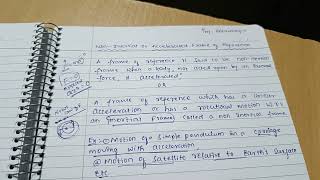 Non-Inertial or Accelerated Frame of Reference
A frame of reference is said to be non-inertial
frame when a body, not acted upon by an external
force is accelerated"
OR
A frame of reference which has a linear
acceleration or has a rotational motion w.r.t
an inertial frame called a non inertial frame.
Ex:- ① Motion of a simple pendulum in a carriage
moving with acceleration,
② Motion of satellite relative to Earth's surface
etc.